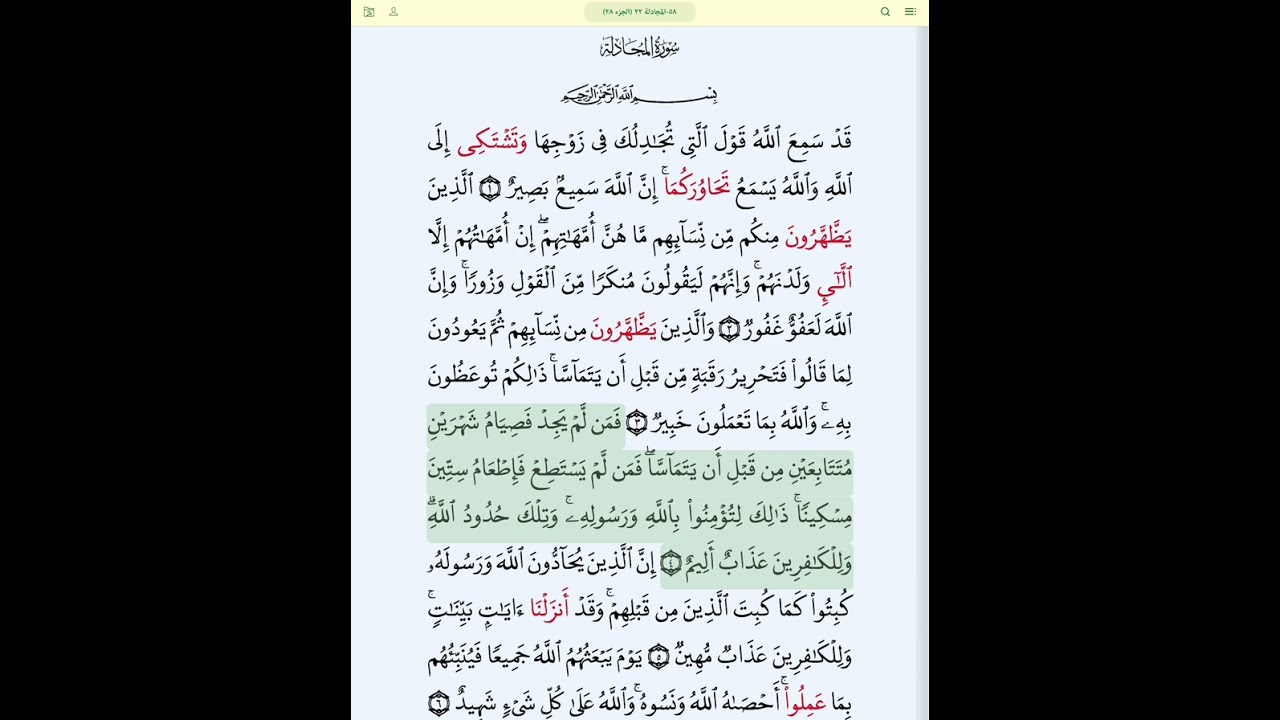 ٥٨-المجادلة ٢٢ (الجزء ٢٨)
سُورَةُ المُجَادلَةِ
بِسْمِ ٱللَّهِ ٱلرَّحْمَٰنِ ٱلرَّحِيمِ
قَدْ سَمِعَ ٱللَّهُ قَوْلَ ٱلَّتِي تُجَٰدِلُكَ فِي زَوْجِهَا وَتَشْتَكِي إِلَى
ٱللَّهِ وَٱللَّهُ يَسْمَعُ تَحَاوُرَكُمَآۚ إِنَّ ٱللَّهَ سَمِيعٌۢ بَصِيرٌ ١ ٱلَّذِينَ
يَظَّهَّرُونَ مِنكُم مِّن نِّسَآئِهِم مَّا هُنَّ أُمَّهَٰتِهِمْۖ إِنْ أُمَّهَٰتُهُمْ إِلَّا
ٱلَّٰٓـِٔي وَلَدْنَهُمْۚ وَإِنَّهُمْ لَيَقُولُونَ مُنكَرًا مِّنَ ٱلْقَوْلِ وَزُورًاۚ وَإِنَّ
ٱللَّهَ لَعَفُوٌّ غَفُورٌ ٢ وَٱلَّذِينَ يَظَّهَّرُونَ مِن نِّسَآئِهِمْ ثُمَّ يَعُودُونَ
لِمَا قَالُوا۟ فَتَحْرِيرُ رَقَبَةٍ مِّن قَبْلِ أَن يَتَمَآسَّاۚ ذَٰلِكُمْ تُوعَظُونَ
بِهِۦۚ وَٱللَّهُ بِمَا تَعْمَلُونَ خَبِيرٌ ٣ فَمَن لَّمْ يَجِدْ فَصِيَامُ شَهْرَيْنِ
مُتَتَابِعَيْنِ مِن قَبْلِ أَن يَتَمَآسَّاۖ فَمَن لَّمْ يَسْتَطِعْ فَإِطْعَامُ سِتِّينَ
مِسْكِينًاۚ ذَٰلِكَ لِتُؤْمِنُوا۟ بِٱللَّهِ وَرَسُولِهِۦۚ وَتِلْكَ حُدُودُ ٱللَّهِۗ
وَلِلْكَٰفِرِينَ عَذَابٌ أَلِيمٌ ٤ إِنَّ ٱلَّذِينَ يُحَآدُّونَ ٱللَّهَ وَرَسُولَهُۥ
كُبِتُوا۟ كَمَا كُبِتَ ٱلَّذِينَ مِن قَبْلِهِمْۚ وَقَدْ أَنزَلْنَآ ءَايَٰتٍۭ بَيِّنَٰتٍۚ
وَلِلْكَٰفِرِينَ عَذَابٌ مُّهِينٌ ٥ يَوْمَ يَبْعَثُهُمُ ٱللَّهُ جَمِيعًا فَيُنَبِّئُهُم
بِمَا عَمِلُوٓا۟ۚ أَحْصَىٰهُ ٱللَّهُ وَنَسُوهُۚ وَٱللَّهُ عَلَىٰ كُلِّ شَيْءٍ شَهِيدٌ ٦